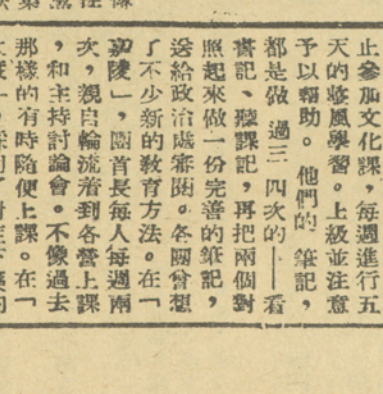 止參加文化課，每週進行五
天的整風學習。上級並注意
予以輔助。他們的筆記，
都是做過三四次的——看
書記、聽課記，再把兩個對
照起來做一份完善的筆記，
送給政治處審閱。各團曾想
了不少新的敎育方法。在「
嘉陵」，團首長每人每週兩
次，親自輪流着到各營上課
，和主持討論會。不像過去
那樣的有時隨便上課。在「